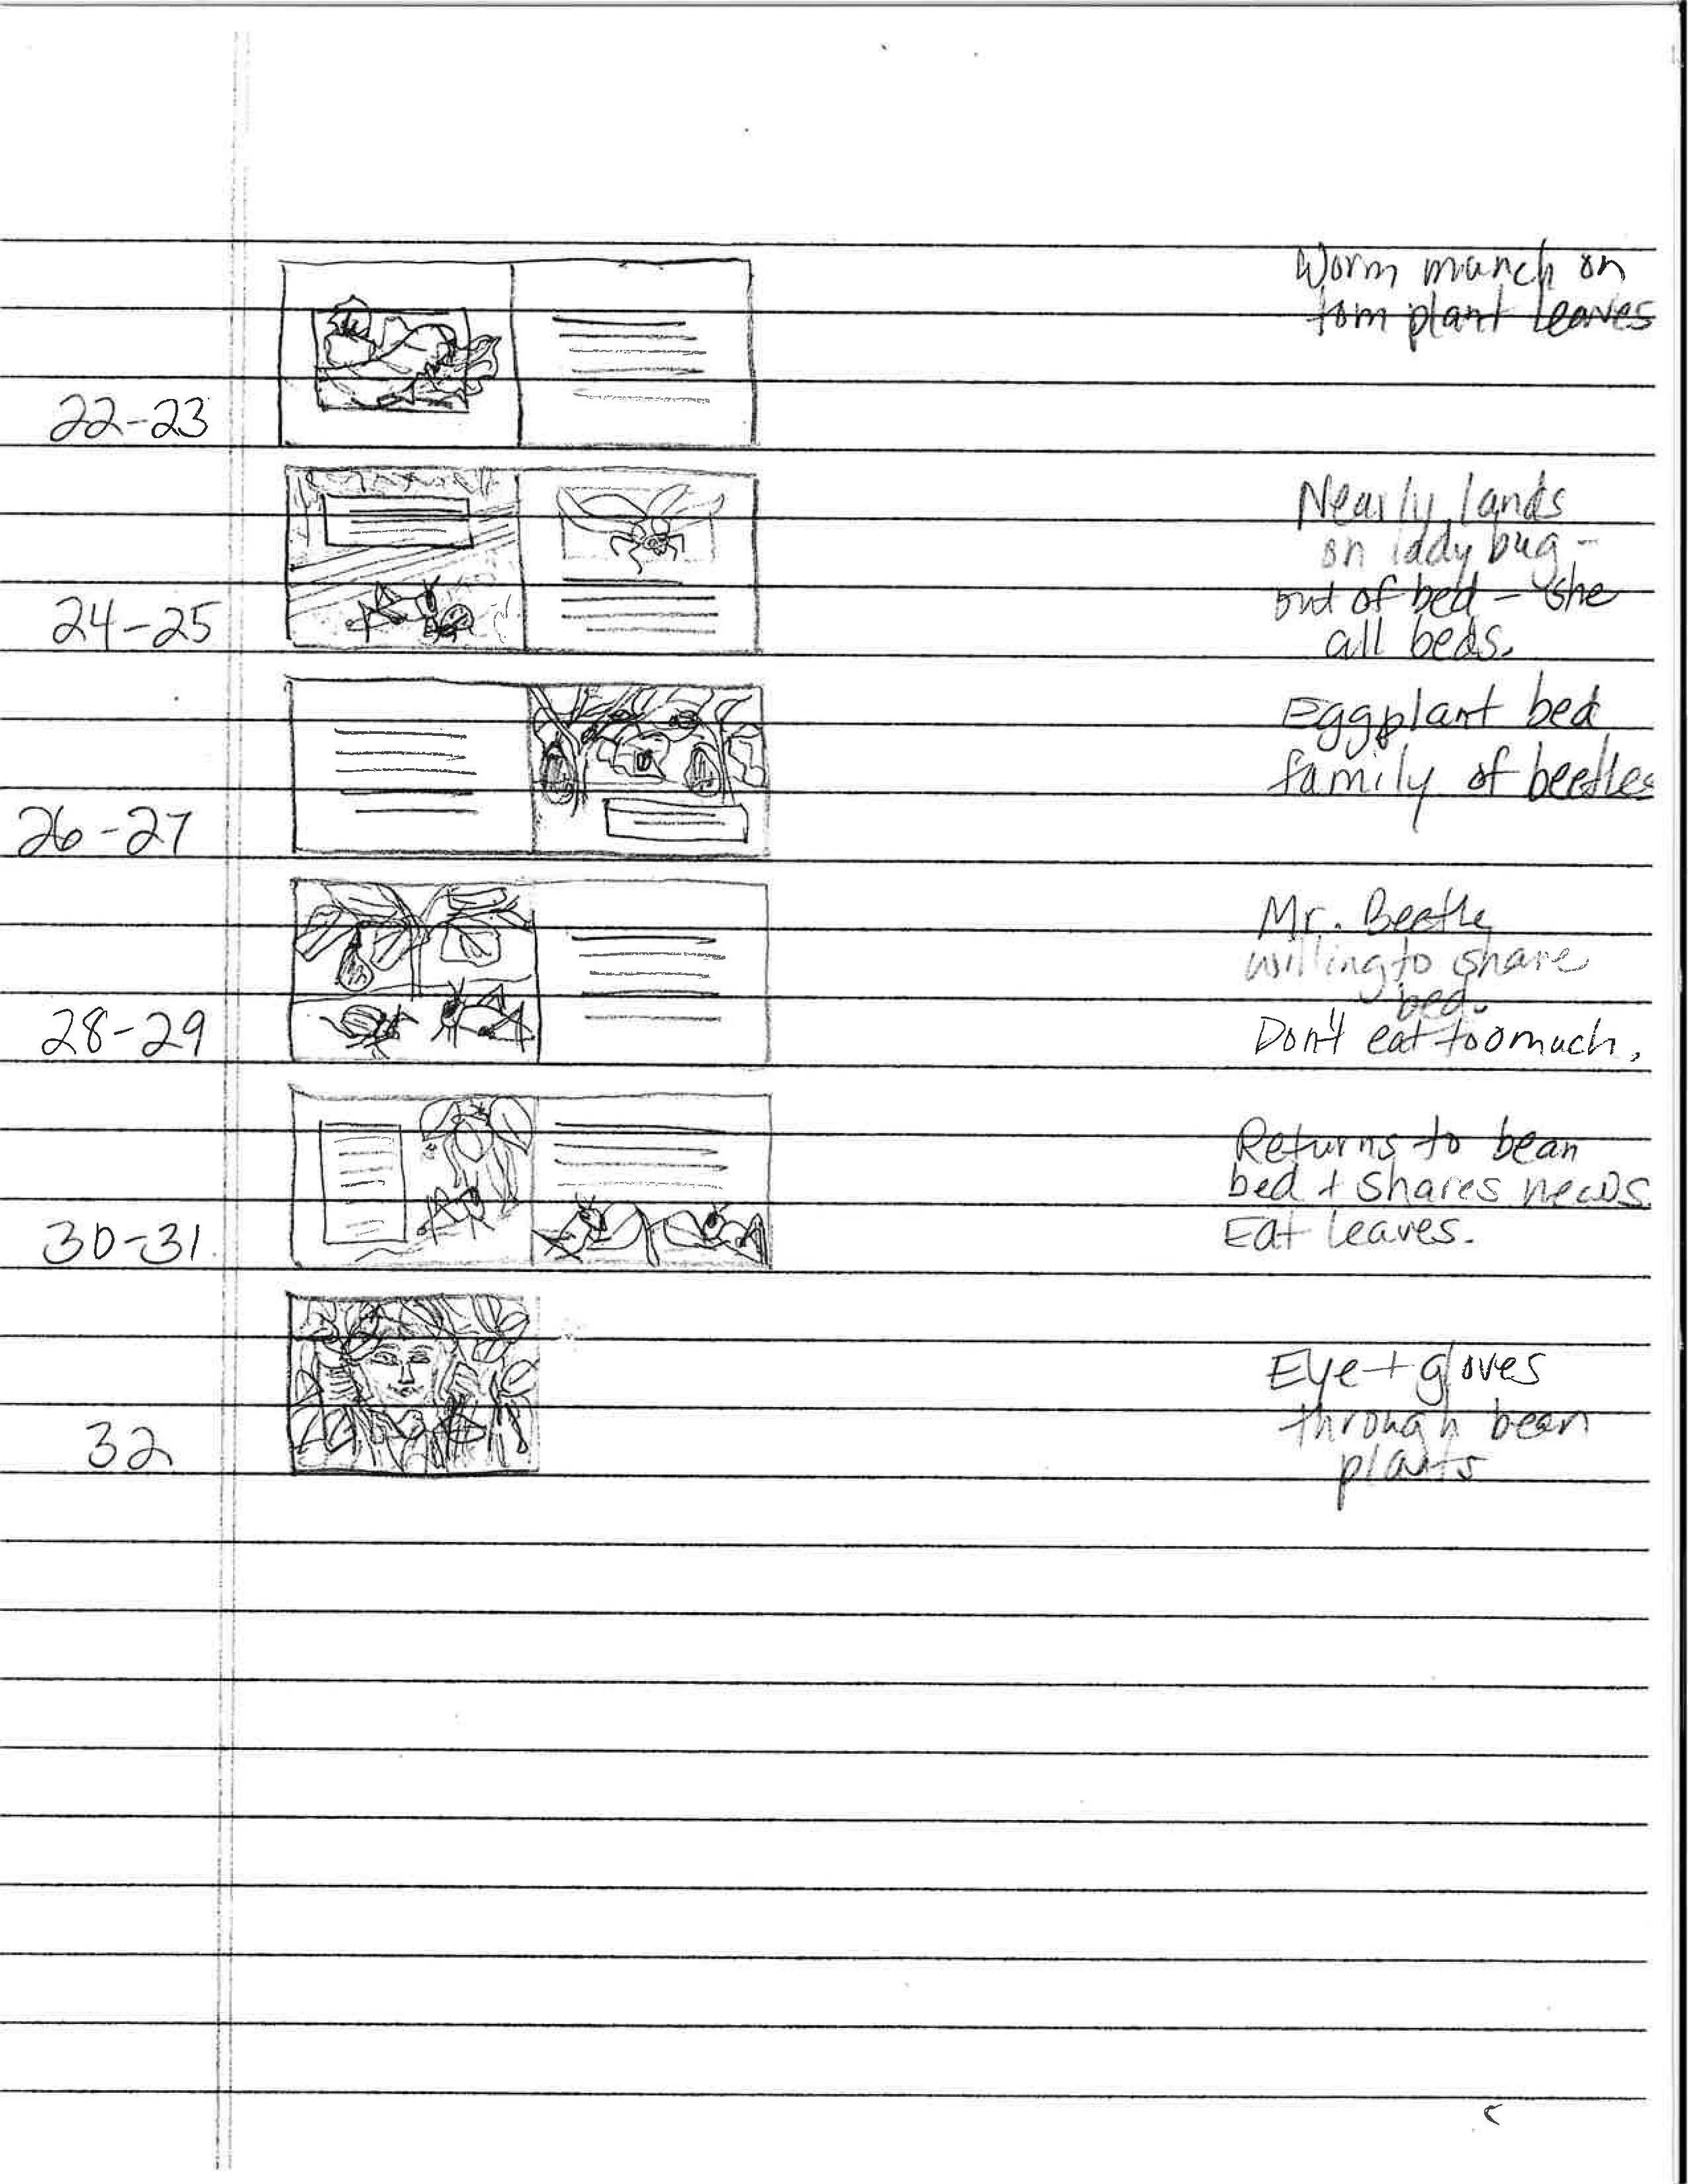 Worm munch on
tom plant leaves
22-23
Nearly lands
on lady bug -
out of bed - she
all beds.
24-25
Eggplant bed
family of beetles
26-27
Mr. Beetle
willing to share
bed.
Don't eat too much.
28-29
Returns to bean
bed + shares news.
Eat leaves.
30-31
Eye + gloves
through bean
plants
32